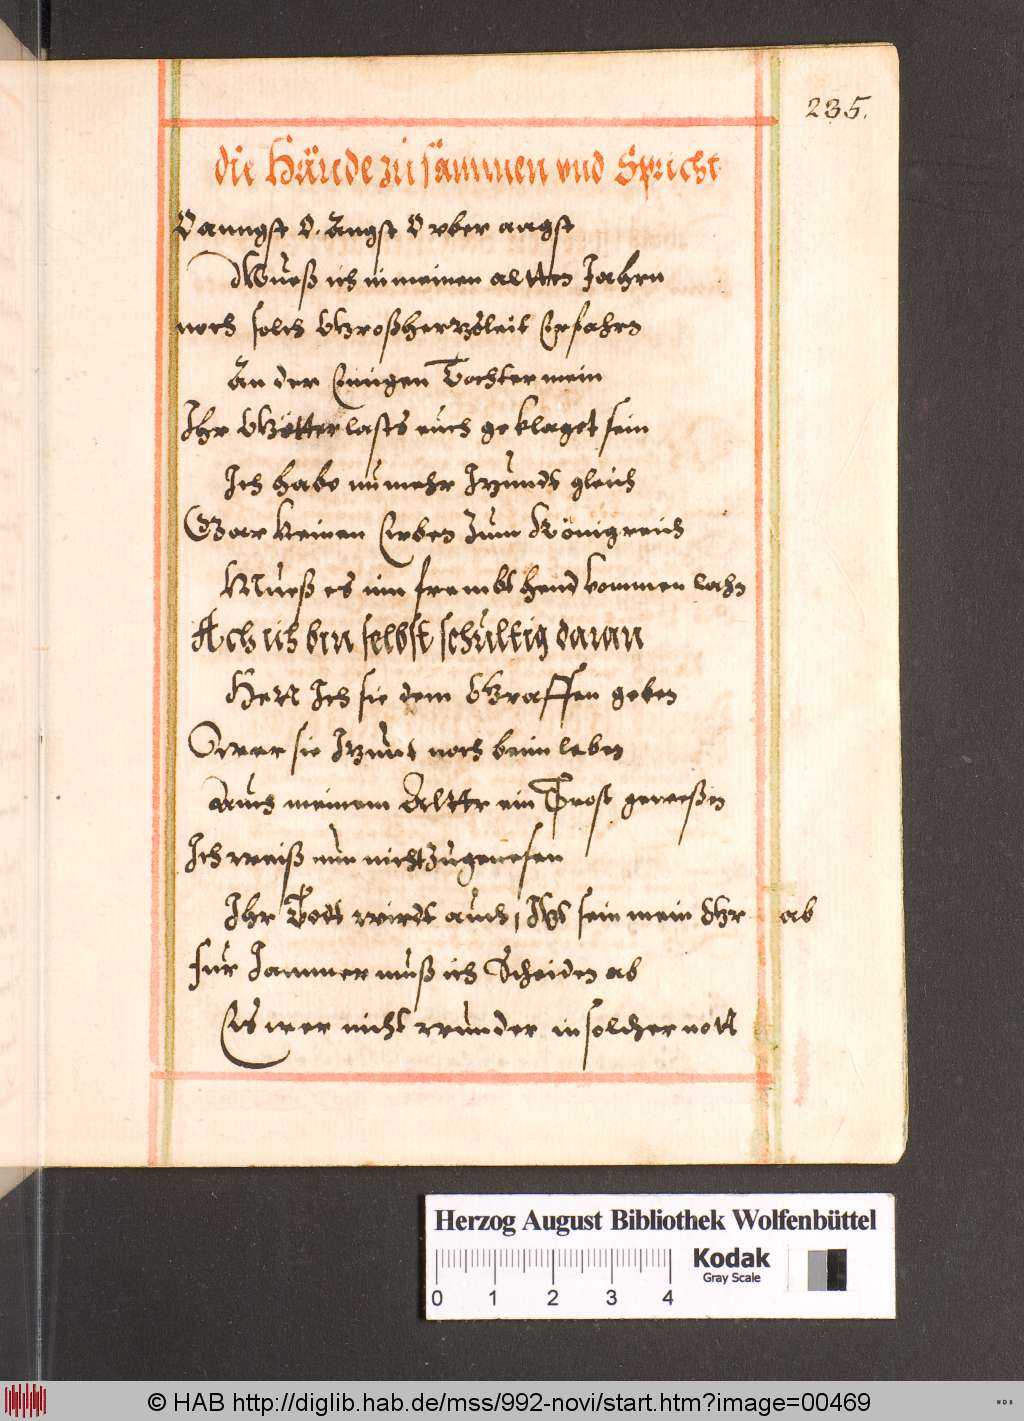 235.
die Hände zusammen vnd Spricht
O anngst O. Angst O vber aagst
Mueß ich in meinen altten Jahrn
noch solch Großhertzleit Erfahrn
An der Einigen Tochter mein
Ihr Götter lasts euch geklaget sein
Ich habe nu mehr Itzundt gleich
Gar keinen Erben Zum Königreich
Mueß es inn frembt hend kommen lahn
Ach ich bin selbst schultig daran
Hett Ich sie dem Graffen geben
So wer sie Itzunt noch beim leben
Auch meinem Altter ein Trost geweßn
Ich weiß nun nicht Zu genesen
Ihr Todt wirdt auch, Itzt sein mein ab
fur Jammer muß ich Scheiden ab
Es wer nicht wunder in solcher nott
Herzog August Bibliothek Wolfenbüttel
Kodak
Gray Scale
0 1 2 3 4
© HAB http://diglib.hab.de/mss/992-novi/start.htm?image=00469